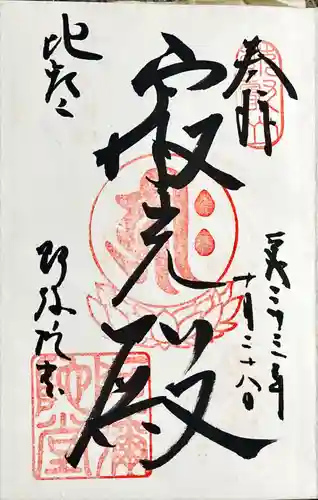 奉拝
平成二十三年
十月二十八日
寂光殿
比叡山
阿弥陀堂